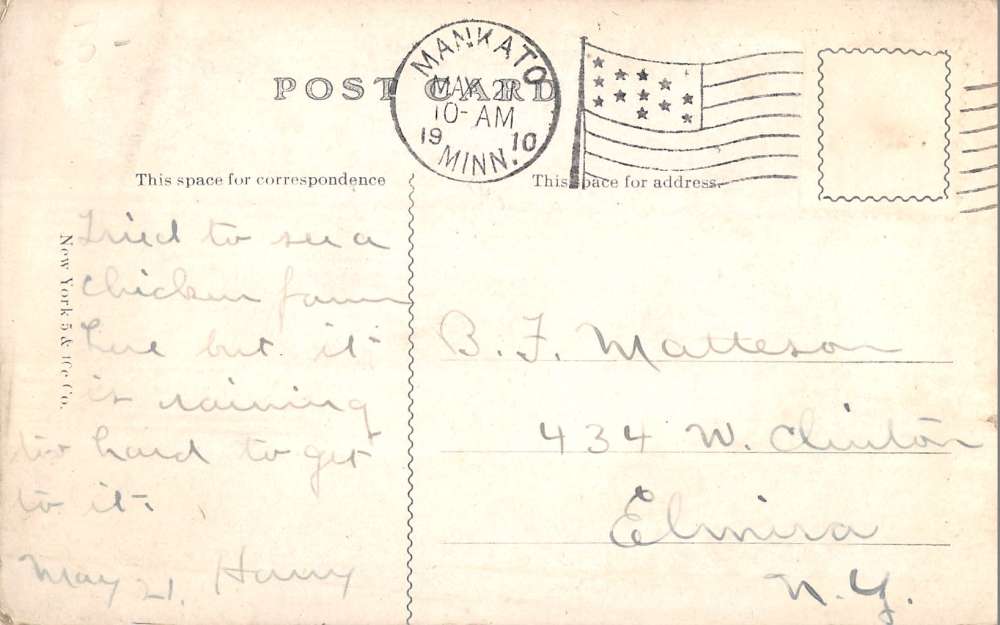 POST CARD
MANKATO
MAY 21
10-AM
19 10
MINN.
This space for correspondence
This space for address.
New York 5 & 10c Co.
Tried to see a
chicken farm
here but it
is raining
too hard to get
to it.
May 21. Harry
B. F. Matteson
434 W. Clinton
Elmira
N.Y.